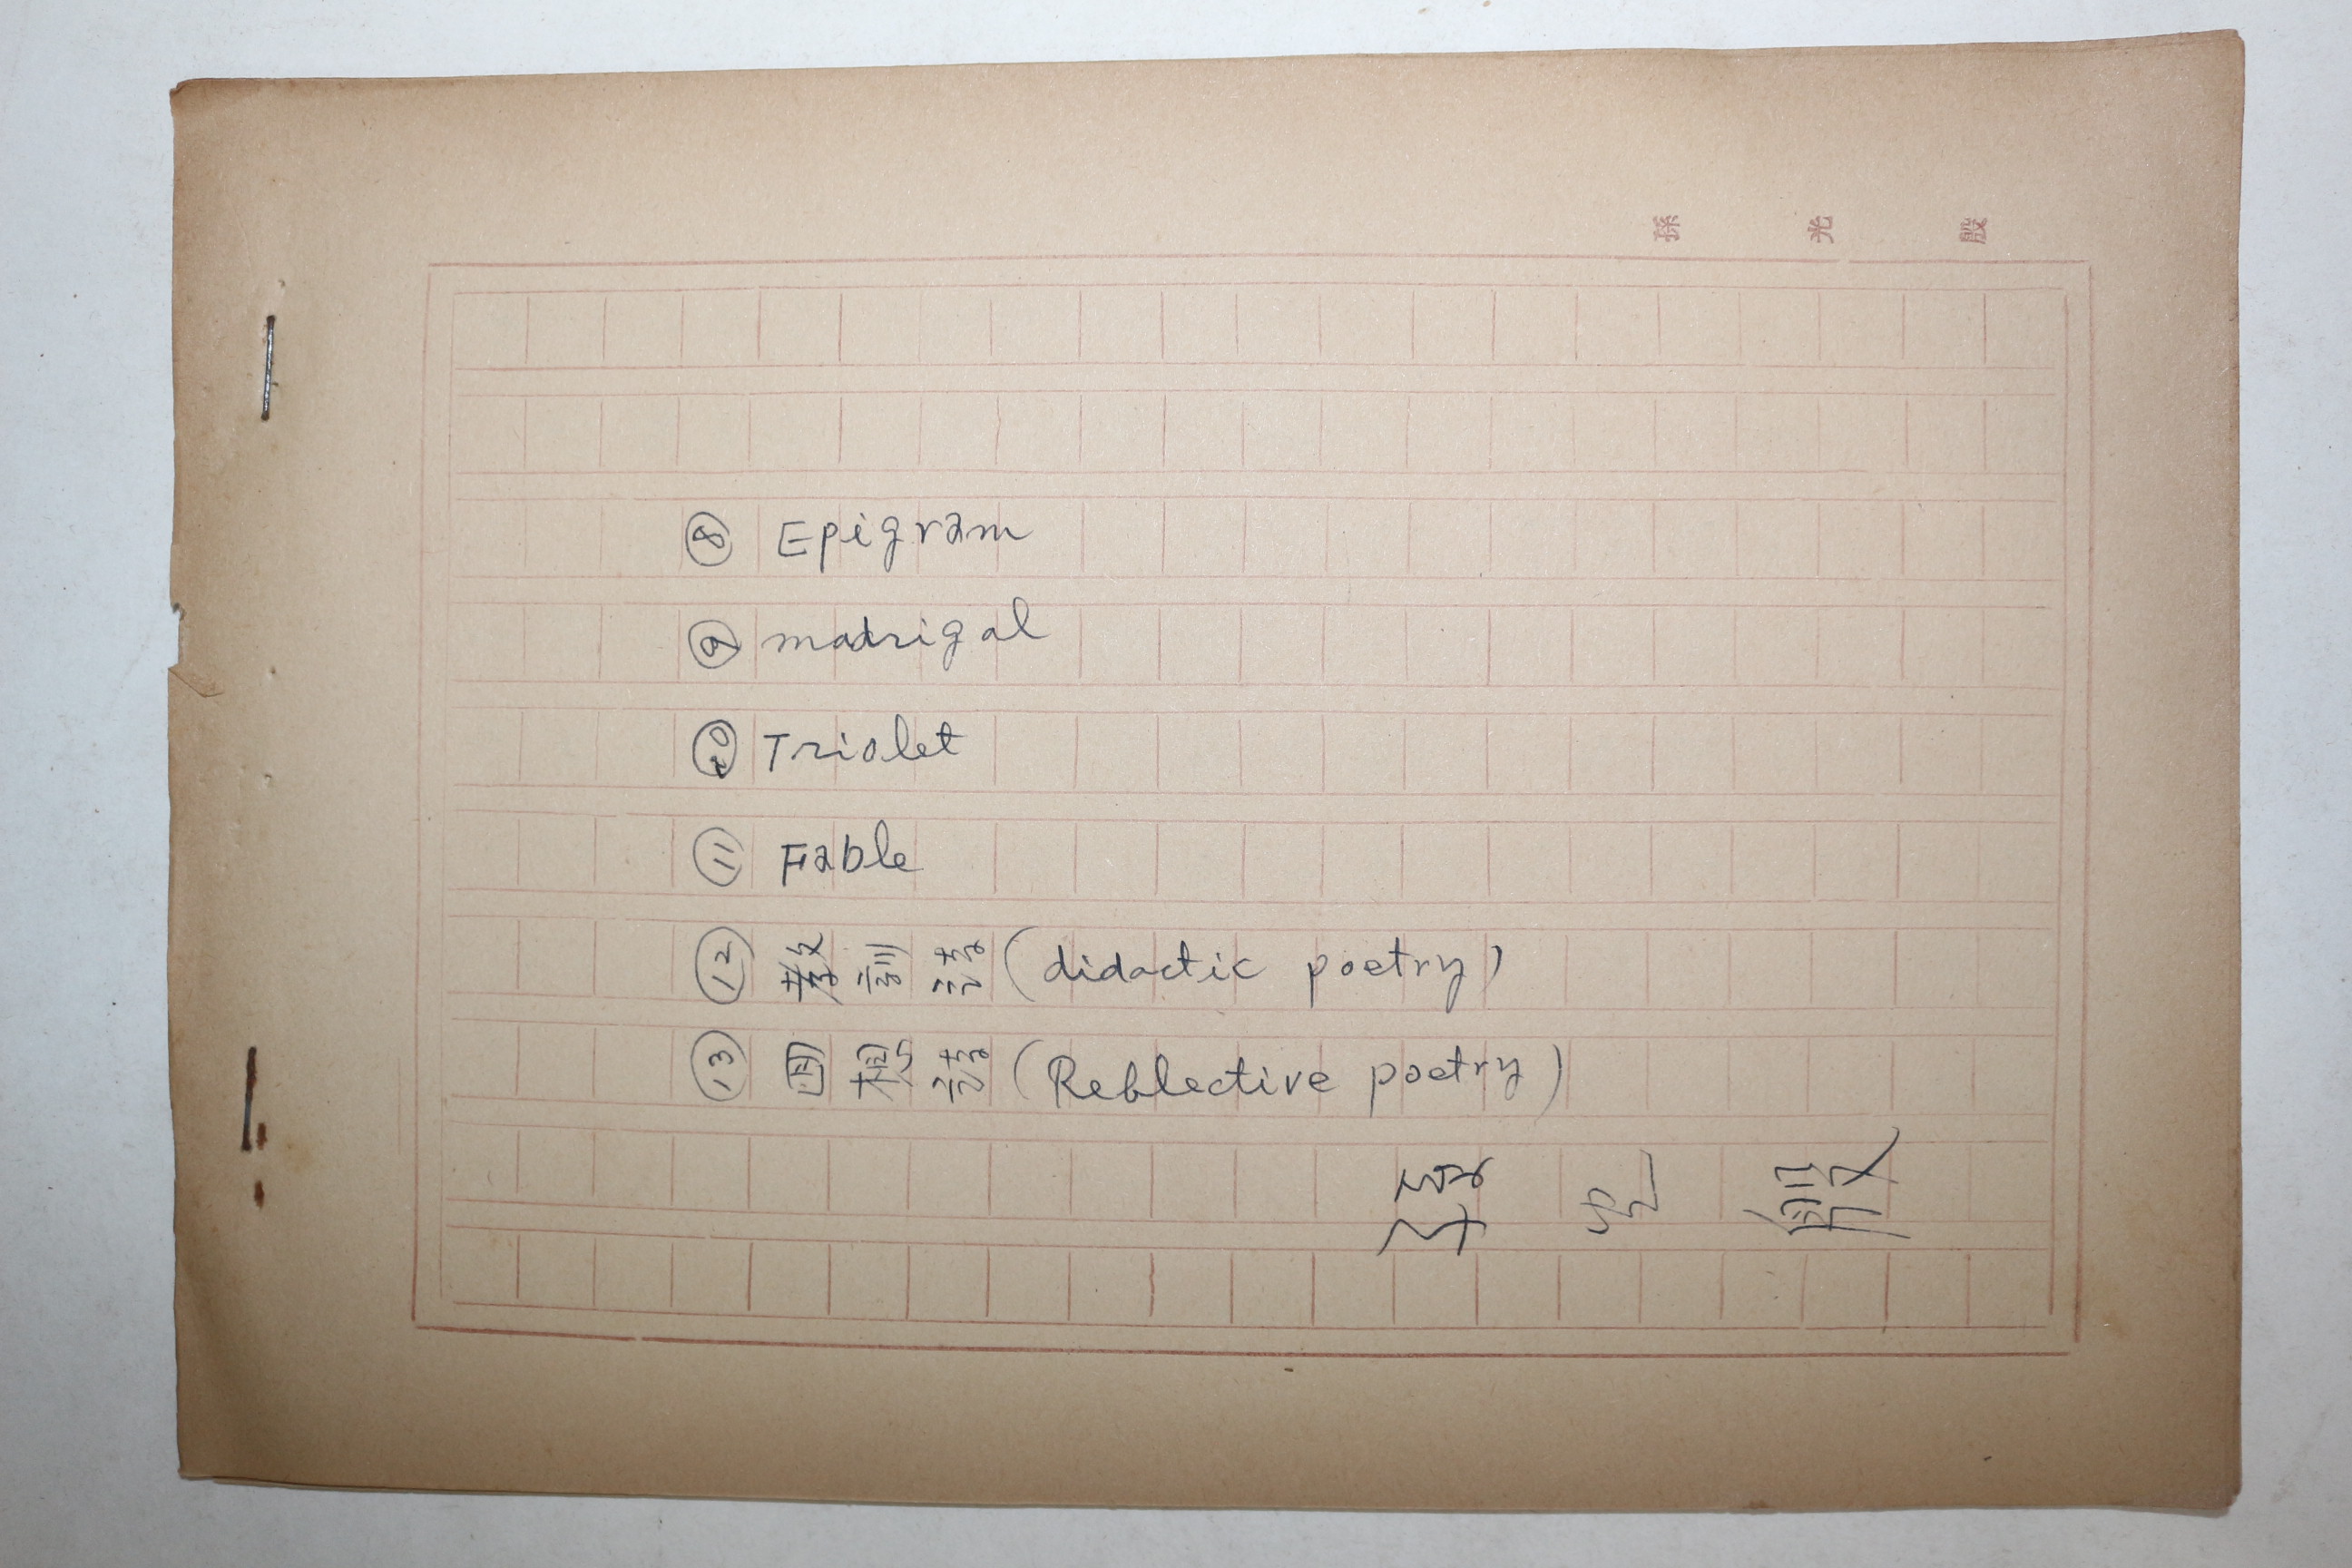 孫光殷
⑧ Epigram
⑨ madrigal
⑩ Triolet
⑪ Fable
⑫ 教訓詩(didactic poetry)
⑬ 回想詩(Reflective poetry)
孫光殷